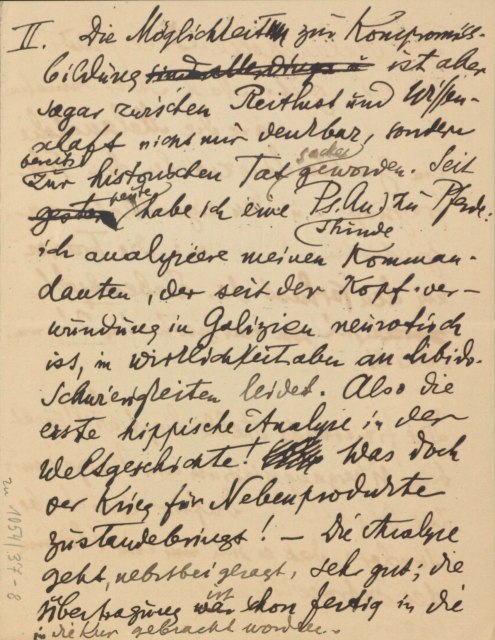 II. Die Möglichkeiten zur Kompromiss-
bildung sind allerdings ist aber
sogar zwischen Reitlust und Wissen-
schaft nicht nur denkbar, sondern
bereits
zur historischen Tatsache geworden. Seit
gestern heute habe ich eine Ps.An. Stunde zu Pferde:
ich analysiere meinen Komman-
danten, der seit der Kopf-ver-
wundung in Galizien neurotisch
ist, in Wirklichkeit aber an Libido-
Schwierigkeiten leidet. Also die
erste hippische Analyse in der
Weltgeschichte! Was doch
der Krieg für Nebenprodukte
zustandebringt! – Die Analyse
geht, nebstbei gesagt, sehr gut; die
Übertragung war ist schon fertig in die
in die Kur gebracht worden.
zu 1054/37-8